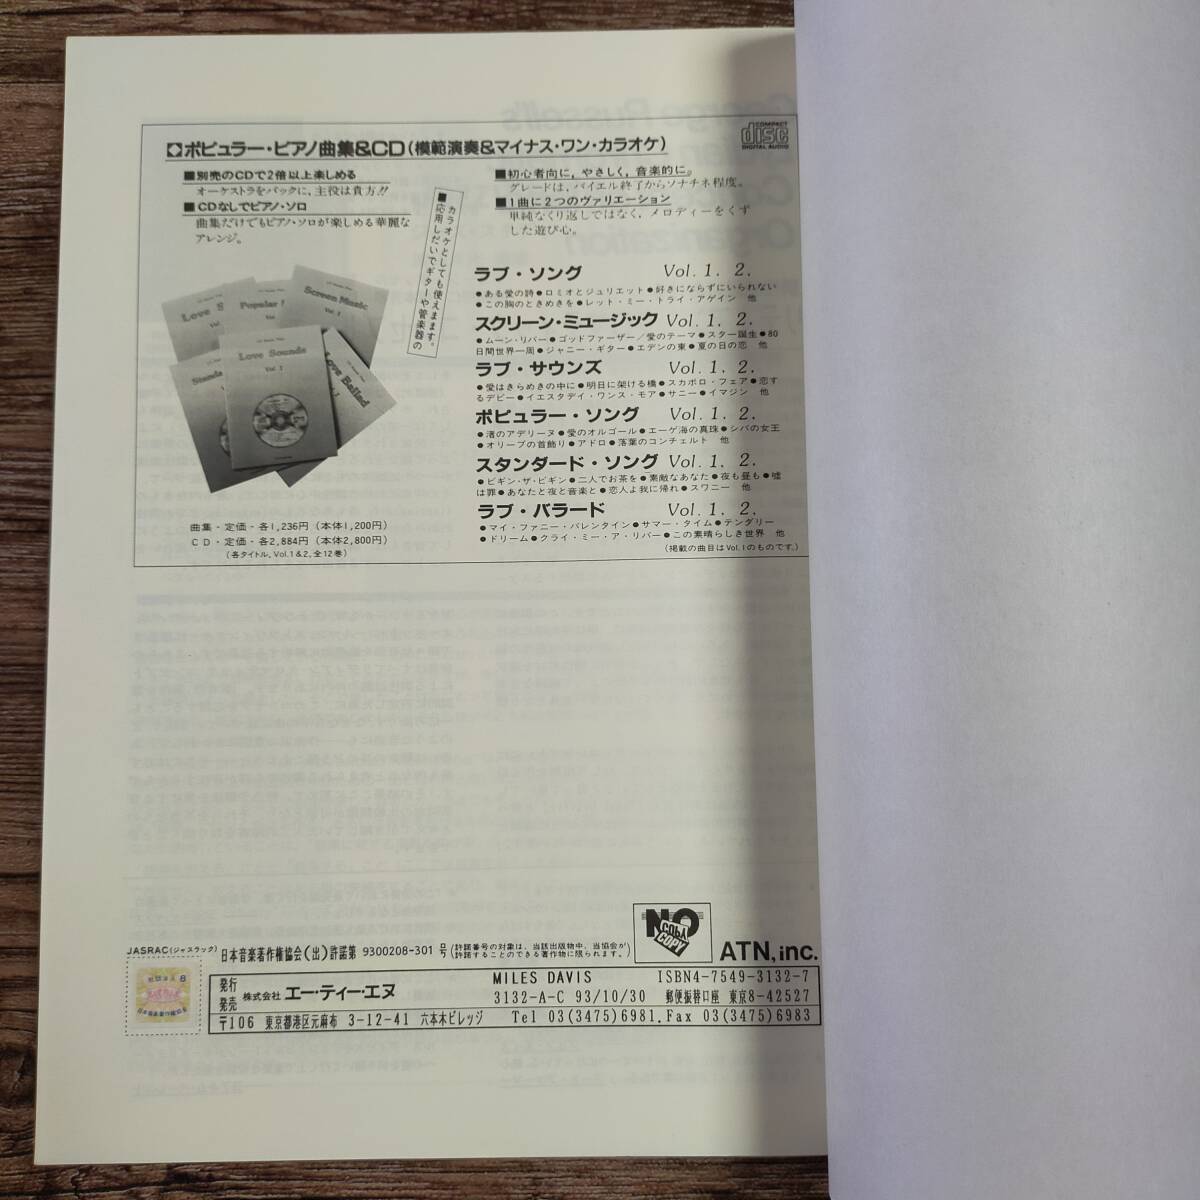 COMPACT
disc
DIGITAL AUDIO
ポピュラー・ピアノ曲集&CD(模範演奏&マイナス・ワン・カラオケ)
■別売のCDで2倍以上楽しめる
オーケストラをバックに、主役は貴方!!
■CDなしでピアノ・ソロ
曲集だけでもピアノ・ソロが楽しめる華麗な
アレンジ。
■カラオケとしても使えます。
応用しだいでギターや管楽器の
■初心者向に、やさしく、音楽的に。
グレードは、バイエル終了からソナチネ程度。
■1曲に2つのヴァリエーション
単純なくり返しではなく、メロディーをくず
した遊び心。
Love Sounds
Vol. 1
Screen Music
Vol. 1
Love Ballad
ラブ・ソング Vol. 1. 2.
●ある愛の詩●ロミオとジュリエット●好きにならずにいられない
●この胸のときめきを●レット・ミー・トライ・アゲイン 他
スクリーン・ミュージック Vol. 1. 2.
●ムーン・リバー●ゴッドファーザー/愛のテーマ●スター誕生●80
日間世界一周●ジャニー・ギター●エデンの東●夏の日の恋 他
ラブ・サウンズ Vol. 1. 2.
●愛はきらめきの中に●明日に架ける橋●スカボロ・フェア●恋す
るデビー●イエスタデイ・ワンス・モア●サニー●イマジン 他
ポピュラー・ソング Vol. 1. 2.
●渚のアデリーヌ●愛のオルゴール●エーゲ海の真珠●シバの女王
●オリーブの首飾り●アドロ●落葉のコンチェルト 他
スタンダード・ソング Vol. 1. 2.
●ビギン・ザ・ビギン●二人でお茶を●素敵なあなた●夜も昼も●嘘
は罪●あなたと夜と音楽と●恋人よ我に帰れ●スワニー 他
ラブ・バラード Vol. 1. 2.
●マイ・ファニー・バレンタイン●サマー・タイム●テンダリー
●ドリーム●クライ・ミー・ア・リバー●この素晴らしき世界 他
(掲載の曲目はVol.1のものです。)
曲集・定価・各1,236円(本体1,200円)
CD・定価・各2,884円(本体2,800円)
(各タイトル、Vol.1&2、全12巻)
JASRAC(ジャスラック)
日本音楽著作権協会(出)許諾第 9300208-301 号
(許諾番号の対象は、当該出版物中、当協会が
許諾することのできる著作物に限られます。)
NO
COPY
ATN, inc.
発行
発売
株式会社 エー・ティー・エヌ
〒106 東京都港区元麻布 3-12-41 六本木ビレッジ
MILES DAVIS ISBN4-7549-3132-7
3132-A-C 93/10/30 郵便振替口座 東京8-42527
Tel 03(3475)6981. Fax 03(3475)6983